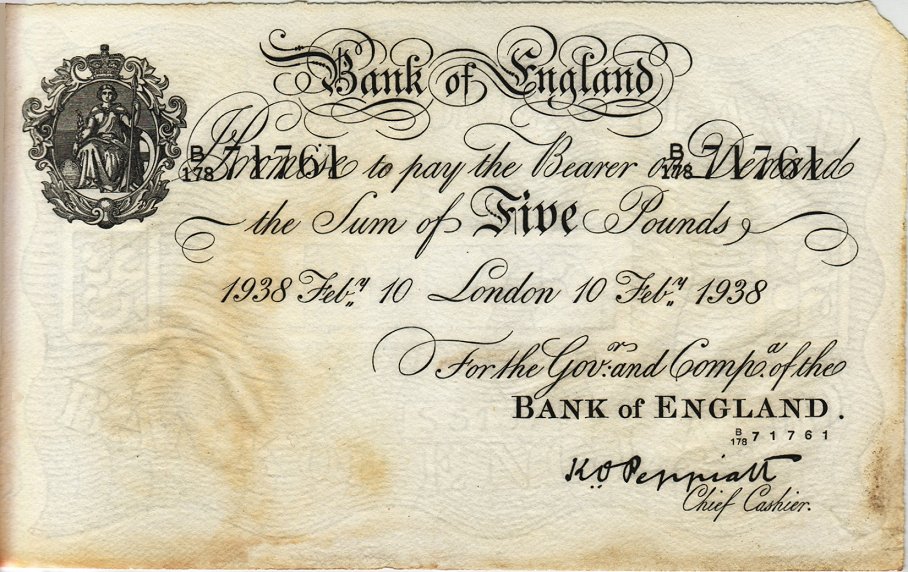 Bank of England
B/178 71761 B/178 71761
I Promise to pay the Bearer on Demand
the Sum of Five Pounds
1938 Feb.y 10 London 10 Feb.y 1938
For the Gov.r and Comp.a of the
BANK of ENGLAND.
B/178 71761
K.O. Peppiatt
Chief Cashier.